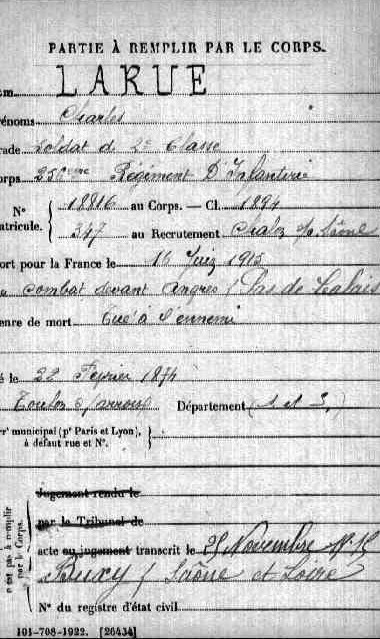 PARTIE À REMPLIR PAR LE CORPS.
om LARUE
rénoms Charles
rade Soldat de 2e Classe
orps 256eme Régiment D'Infanterie
N° 18816 au Corps. — Cl. 1894
atricule. 347 au Recrutement Chalon s/ Saône
ort pour la France le 16 Juin 1915
combat devant Angres / Pas de Calais
enre de mort Tué à l'ennemi
é le 22 Février 1874
Toulon s/ Arroux Département (S et L)
rr' municipal (pr Paris et Lyon),
à défaut rue et N°.
Jugement rendu le
par le Tribunal de
acte ou jugement transcrit le 25 Novembre 1915
Buxy / Saône et Loire
N° du registre d'état civil
n'est pas à remplir
par le Corps.
101-708-1922. [26434]